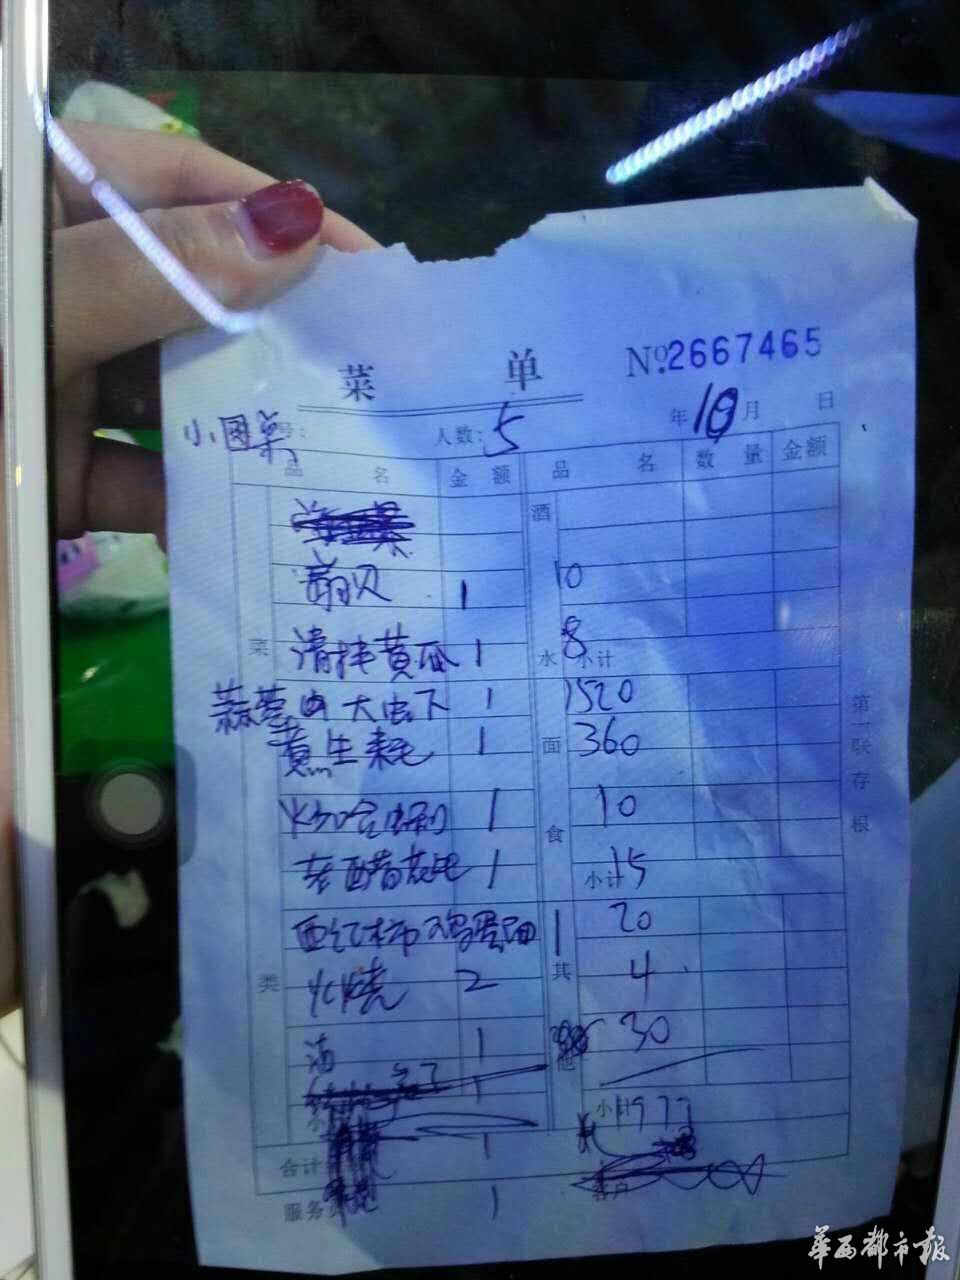 菜 单 No.2667465
小图菜 号: 人数: 5 年 10 月 日
品 名 金额 品 名 数 量 金额
酒
扇贝 1 10
菜 清拌黄瓜 1 水 8 小计
大虫下 1 1520
生耗 1 面 360 第一联存根
1 食 10
老醋花 1 小计 15
西红柿鸡蛋面 1 20
类 火烧 2 其 4
酒 1 他 30
1
小 小计 1977
合计 1
服务员 1 客户
华西都市报